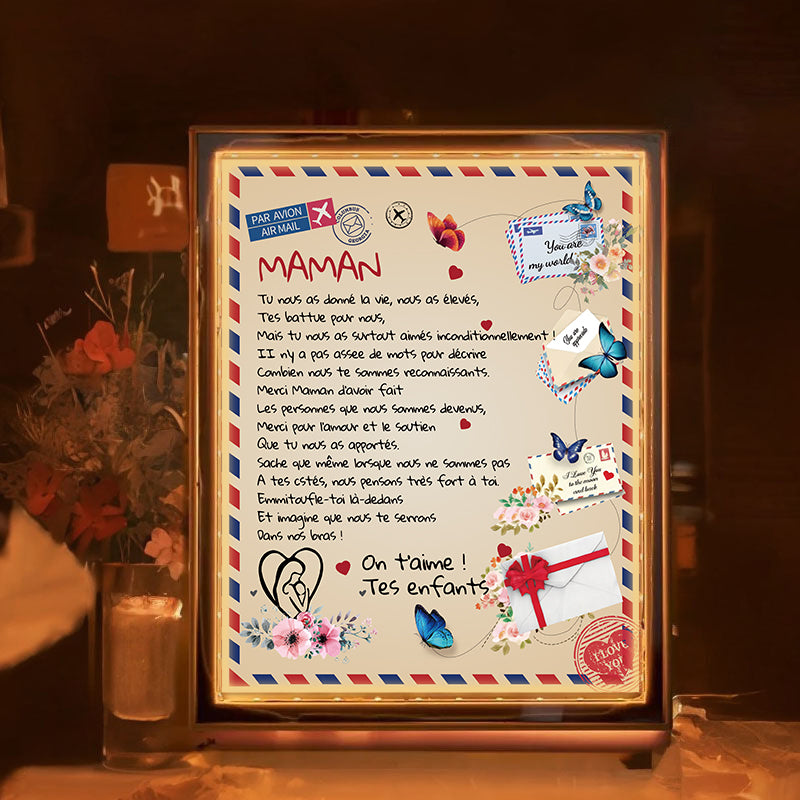 PAR AVION
AIR MAIL
COLUMBUS
GEORGIA
MAMAN
You are
my world
Tu nous as donné la vie, nous as élevés,
T'es battue pour nous,
Mais tu nous as surtout aimés inconditionnellement !
II n'y a pas assee de mots pour décrire
Combien nous te sommes reconnaissants.
Merci Maman d'avoir fait
Les personnes que nous sommes devenus,
Merci pour l'amour et le soutien
Que tu nous as apportés.
Sache que même lorsque nous ne sommes pas
A tes cstés, nous pensons très fort à toi.
Emmitoufle-toi là-dedans
Et imagine que nous te serrons
Dans nos bras !
You are
I Love You
to the moon
and back
On t'aime !
Tes enfants
I LOVE
YOU